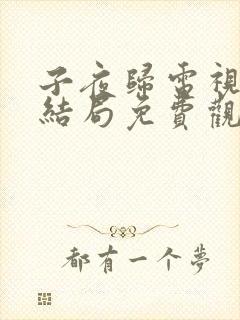 子夜歸電視
結局免費觀
都有一个夢